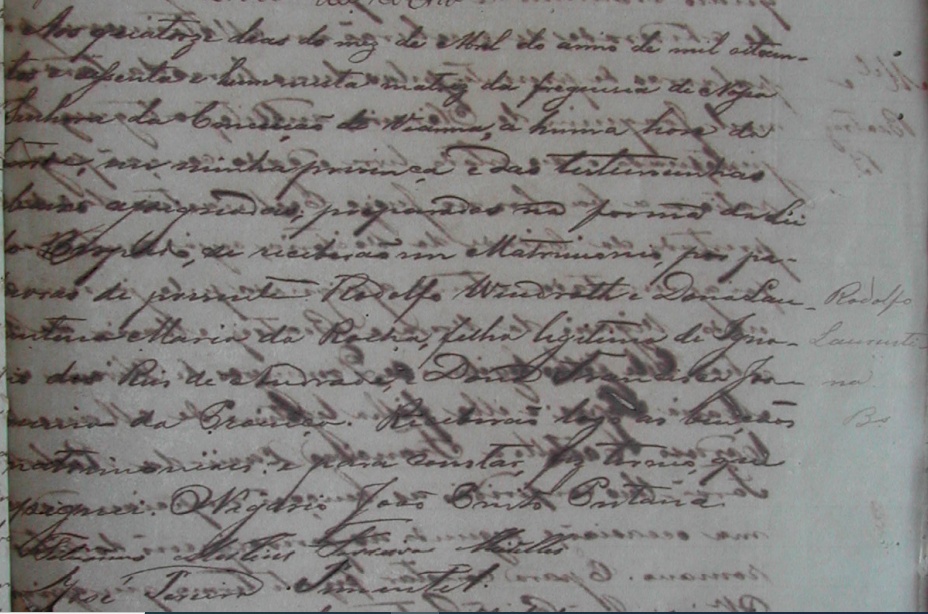 Aos quatorze dias do mez de Abril do anno de mil oitocen-
tos e sessenta e hum nesta matriz da freguesia de Nossa
Senhora da Conceição de Vianna, a huma hora da
tarde, em minha presença e das testemunhas
abaixo assignadas, preparados na forma da Lei
do Bispado, se receberão em Matrimonio, por pa-
lavras de presente Rodolfo Windrath e Dona Lau-
rentina Maria da Rocha, filha legitima de Igna-
cio dos Reis de Andrade, e Dona Francisca Joa-
da Receberão logo as bençãos
matrimoniaes. e para constar, fiz termo, que
assignei. O Vigario João Pinto Pestana
José Pereira Pimentel.
Rodolfo
Laurenti-
na